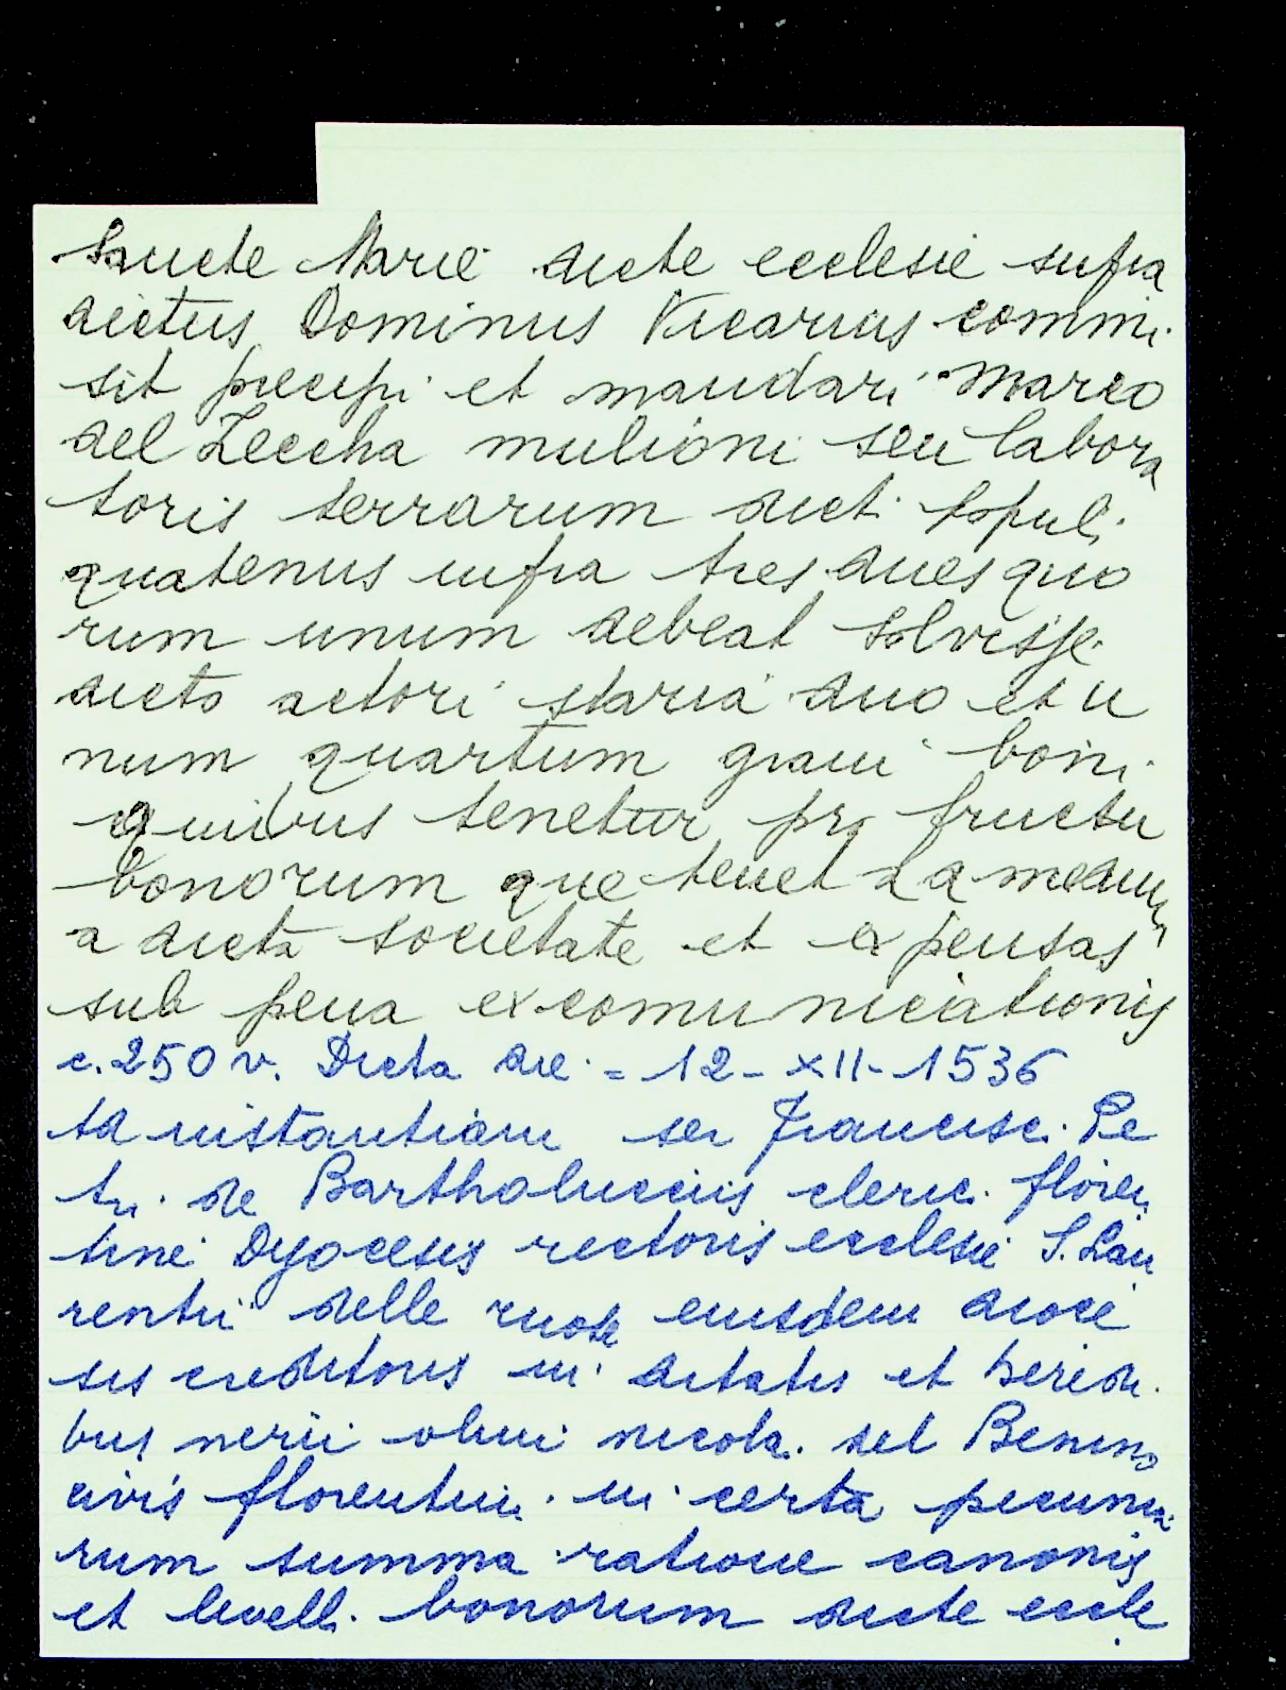 Sancte Marie dicte ecclesie supra
dictus Dominus Vicarius commi
sit precipi et mandari Marco
del Zeccha mulioni seu labora
toris terrarum dicti populi
quatenus infra tres dies quo
rum unum debeat solvisse
dicto actori staria duo et u
num quartum grani boni
quibus tenetur pro fructu
bonorum que tenet ad medium
a dicta societate et expensas
sub pena excomunicationis
c. 250 v. Dicta die = 12 - XII - 1536
Ad instantiam ser Francisci Pe
tri de Bartholuccis clerici floren
tine Dyocesis rectoris ecclesie S. Lau
rentii delle ruote eiusdem dioce
sis creditoris in et heredi
bus nerii olim nicolai del Benino
civis florentini in certa pecunia
rum summa ratione canonis
et livelli bonorum dicte eccle